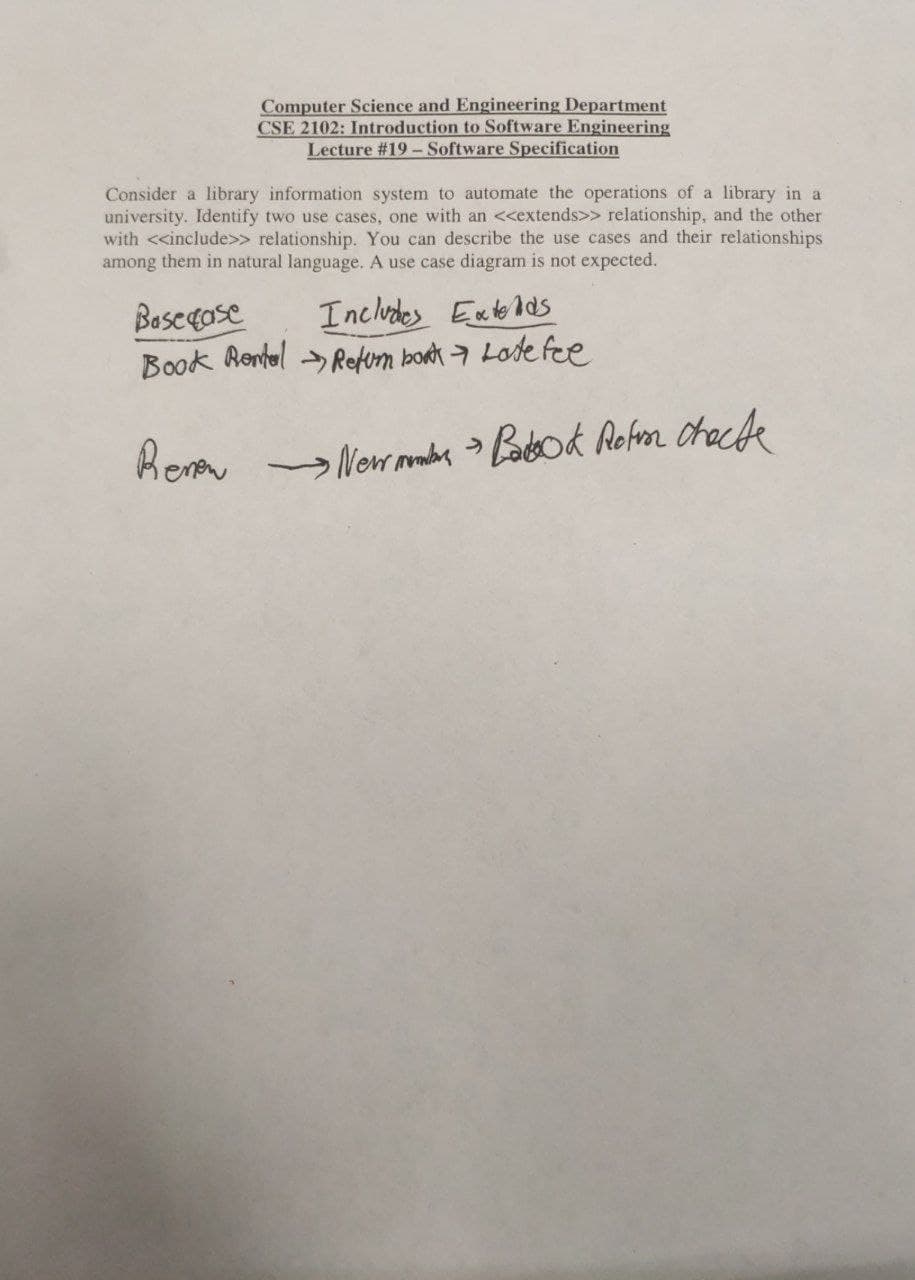 Computer Science and Engineering Department
CSE 2102: Introduction to Software Engineering
Lecture #19 – Software Specification
Consider a library information system to automate the operations of a library in a
university. Identify two use cases, one with an <<extends>> relationship, and the other
with <<include>> relationship. You can describe the use cases and their relationships
among them in natural language. A use case diagram is not expected.
Basecase Includes Extends
Book Rental → Return book → Late fee
Renew → New →